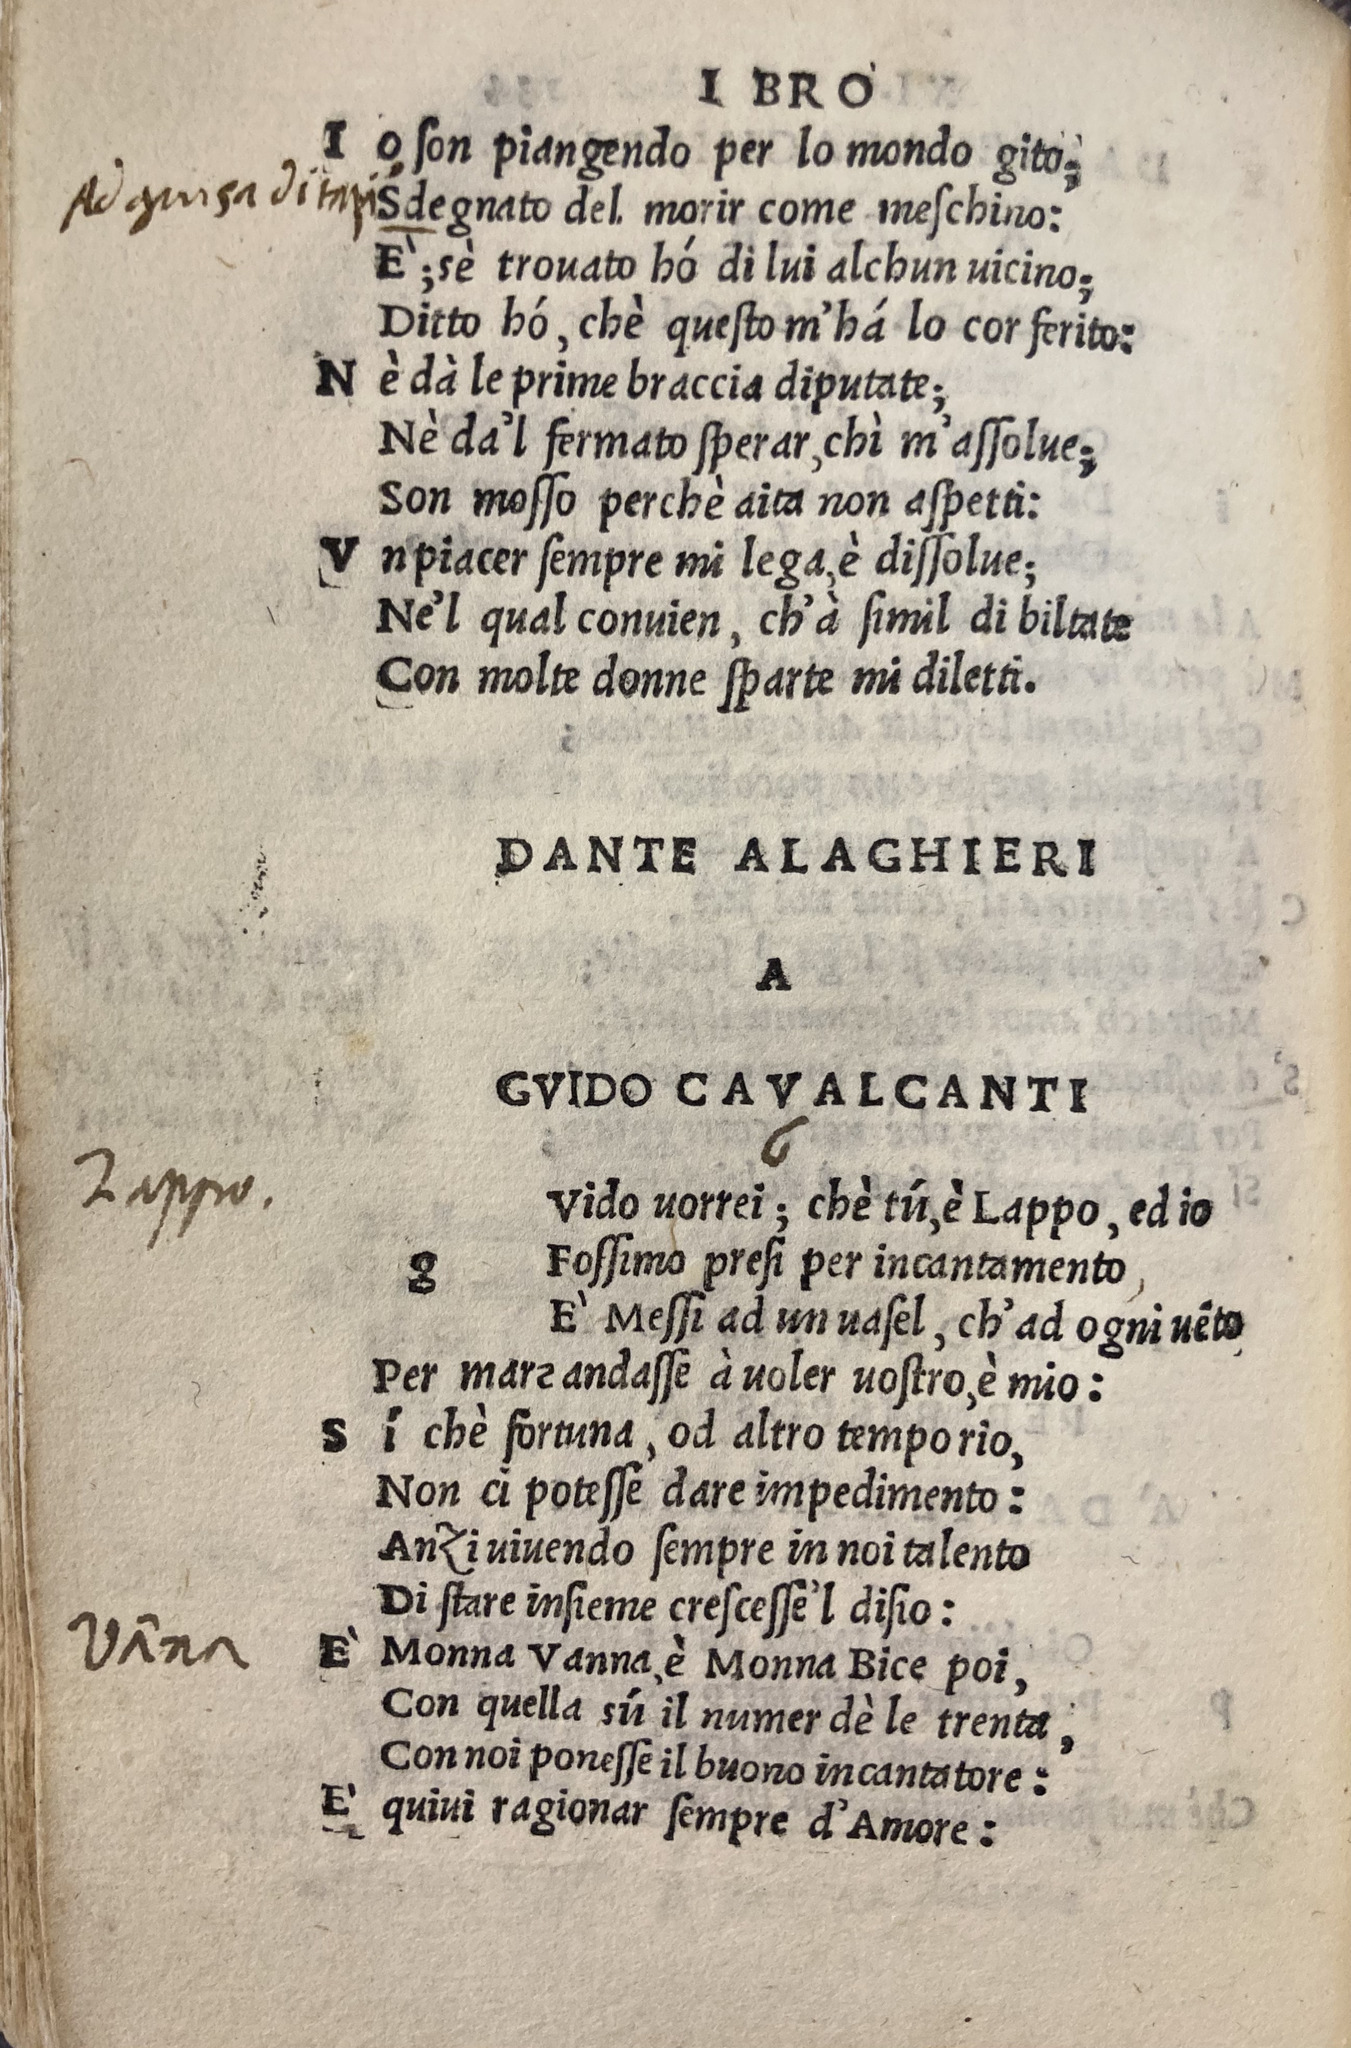 I BRO
I o, son piangendo per lo mondo gito;
Ad guisa di
Sdegnato del morir come meschino:
E`; sè trouato hó di lui alchun uicino;
Ditto hó, chè questo m'há lo cor ferito:
N è dà le prime braccia diputate;
Nè da'l fermato sperar, chì m'assolue;
Son mosso perchè aita non aspetti:
V n piacer sempre mi lega, è dissolue;
Ne'l qual conuien, ch'à simil di biltate
Con molte donne sparte mi diletti.
DANTE ALAGHIERI
A
GVIDO CAVALCANTI
G
Lappo.
Vido uorrei; chè tú, è Lappo, ed io
g Fossimo presi per incantamento,
E` Messi ad un uasel, ch'ad ogni uēto
Per mare andasse à uoler uostro, è mio:
S í chè fortuna, od altro tempo rio,
Non ci potesse dare impedimento:
Anzi uiuendo sempre in noi talento
Di stare insieme crescesse'l disio:
Vāna
E` Monna Vanna, è Monna Bice poi,
Con quella sú il numer dè le trenta,
Con noi ponesse il buono incantatore:
E` quiui ragionar sempre d'Amore: